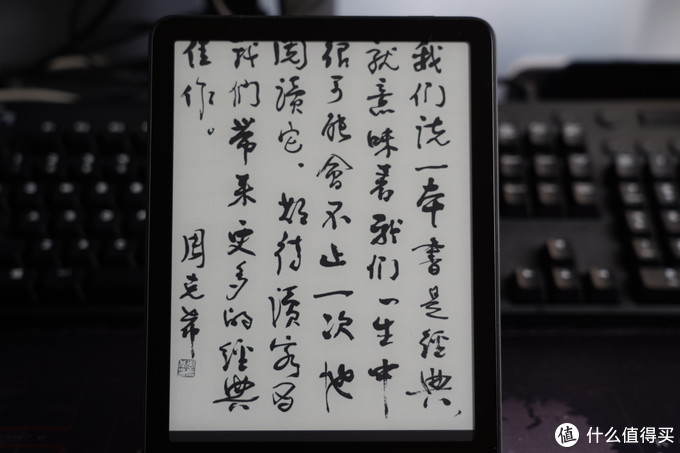 我们说一本書是經典,
就意味着我们一生中
很可能會不止一次地
阅读它。期待读客为
我们带来更多的經典
佳作。
周克希
值 什么值得买